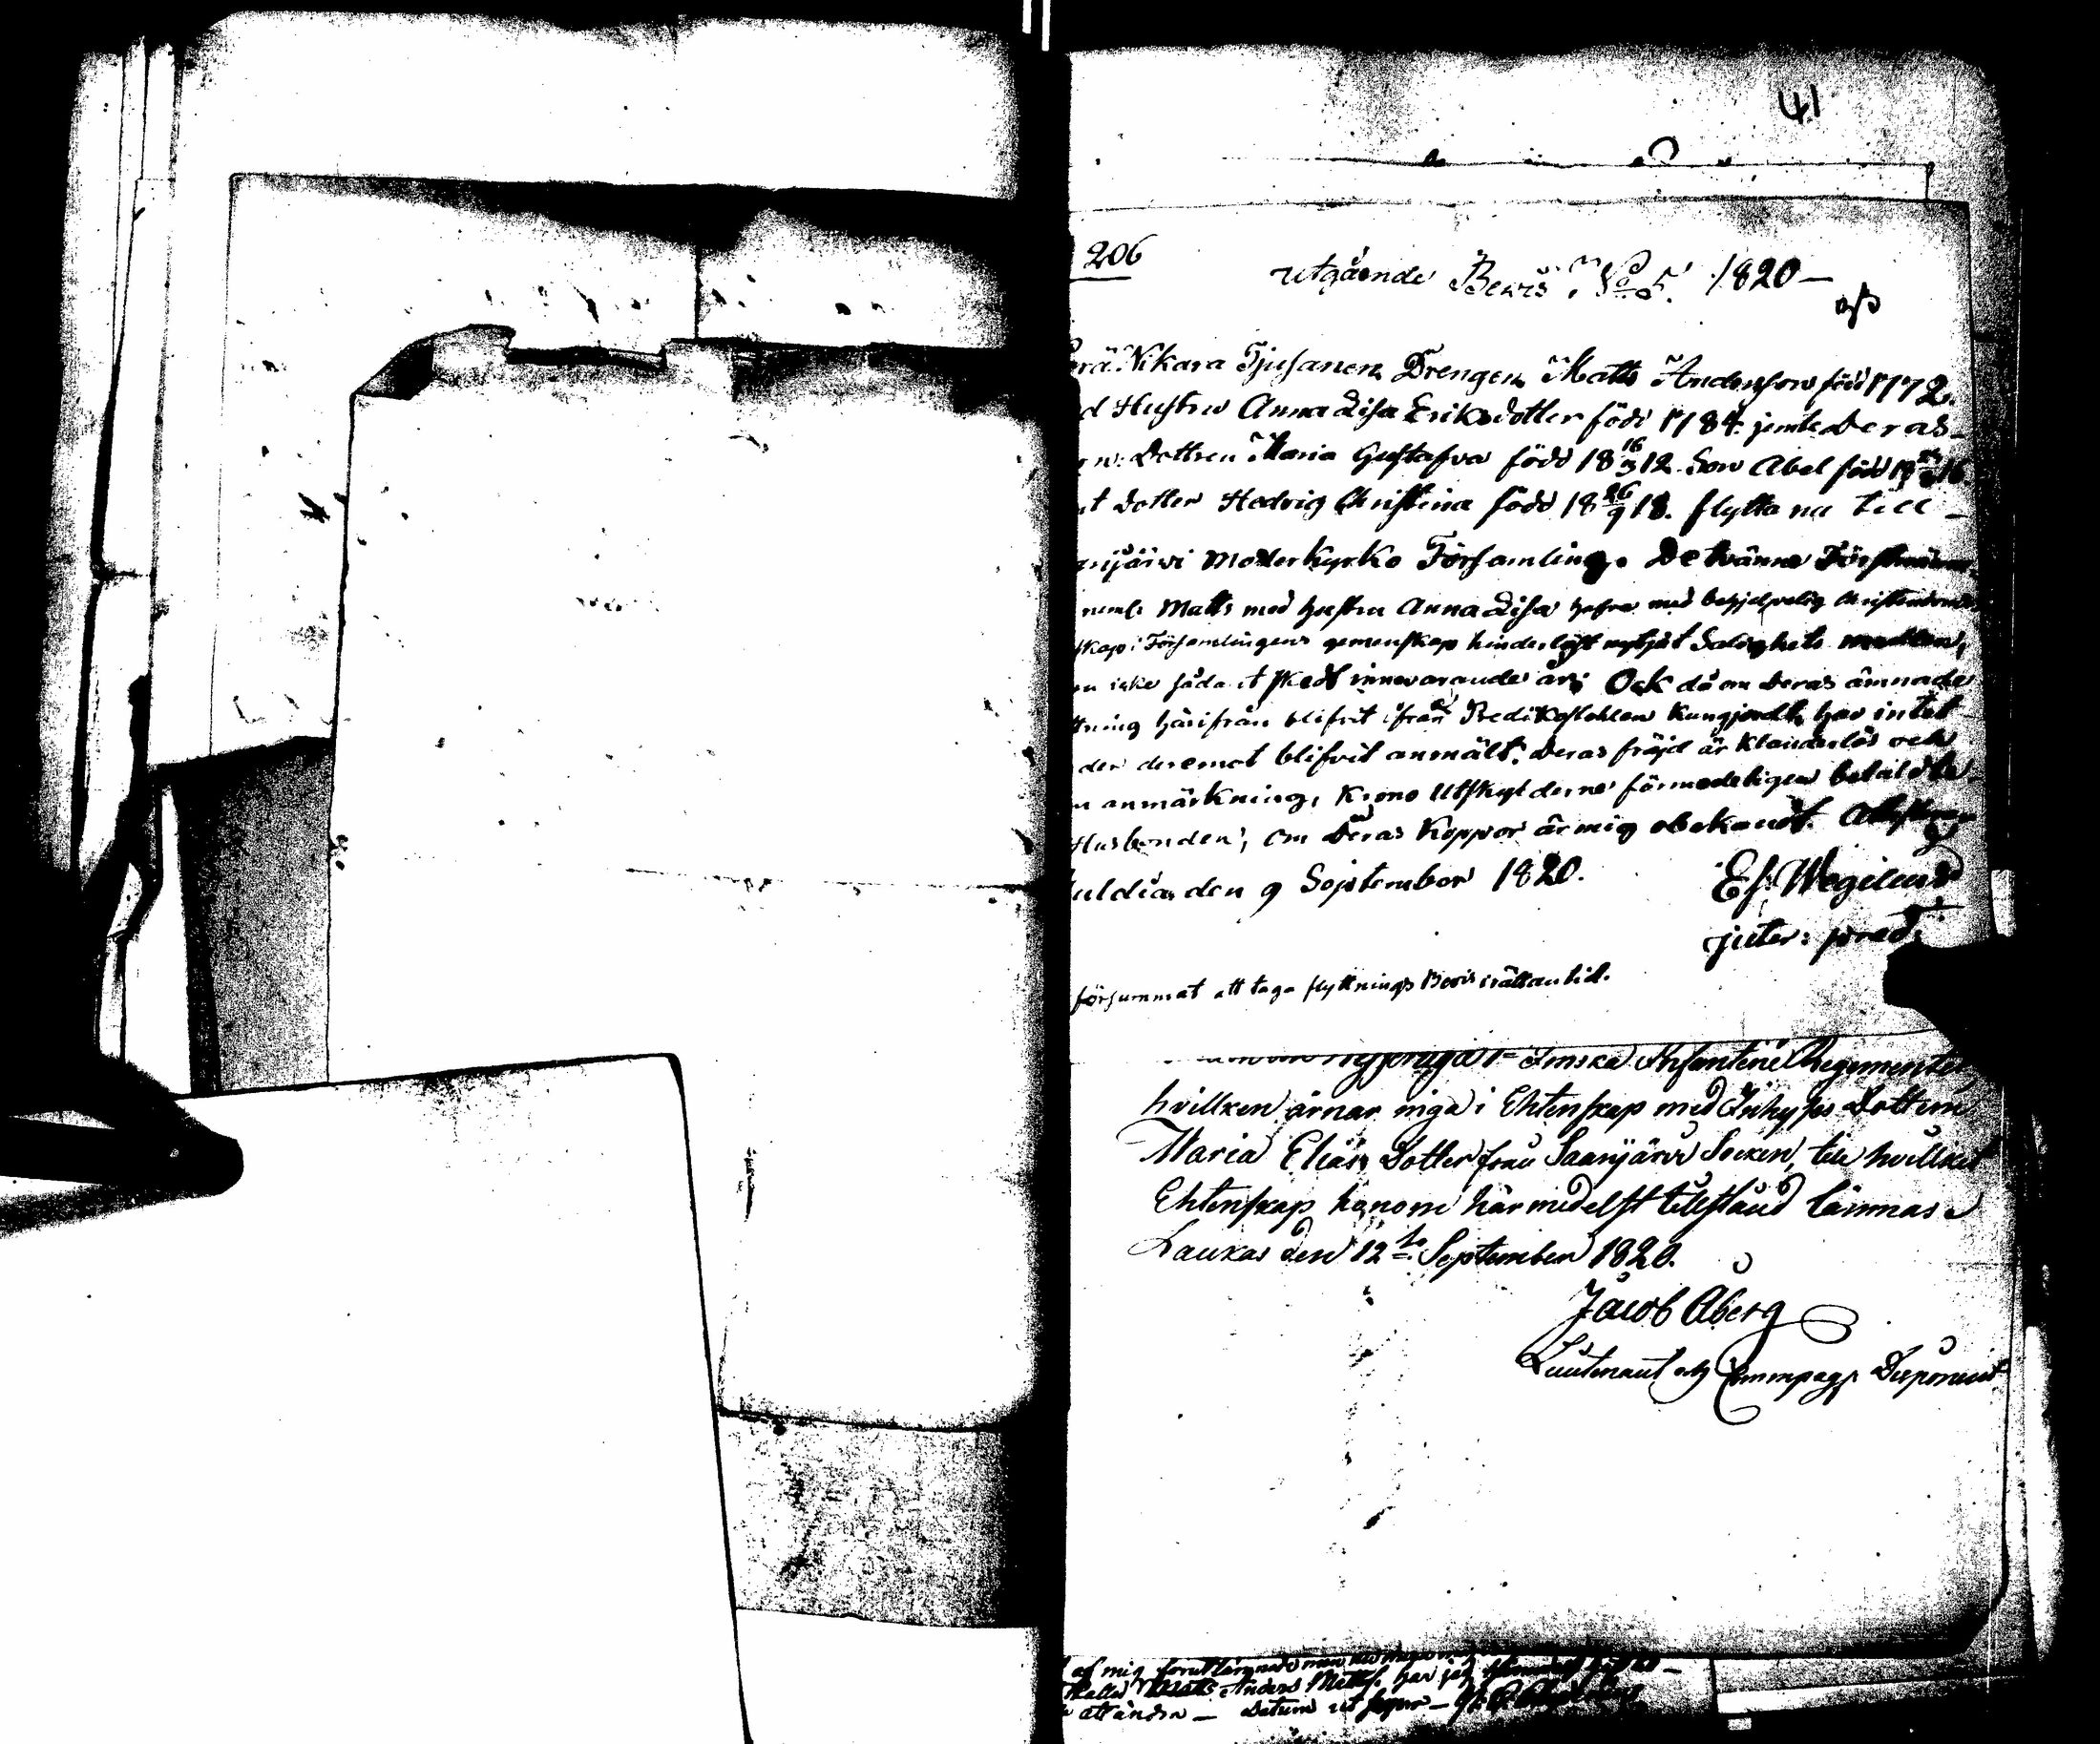 41
206
utgående Bewis No 5. 1820 —
Nikara Tjusanen Drengen Matts Andersson född 1772.
d Hustru Anna Lisa Eriksdotter född 1784. jemte Deras
n: Dottren Maria Gustafva född 18 16/3 12. Son Abel född
t Dotter Hedvig Christina född 18 26/9 18. flytta nu till
arijärvi Moderkyrko Församling. De tvänne
neml: Matts med hustru Anna Lisa hafva med behjelpelig
skap i Församlingens gemenskap hinderlöst nytjat Salighets
icke sådant skedt innevarande år; Och då om Deras ämnade
ttning härifrån blifvit ifrån Predikostohlen kungjordt, har intet
der deremot blifvit anmält. Deras fräjd är klanderlös och
n anmärkning, Krono Utskylderne förmodeligen betalde
Husbonden; om Deras Koppor är mig obekandt.
uldia den 9 September 1820.
Es: Wegelius
försummat att taga flyttnings Bevis i rättan tid.
Infanterie Regemente
hvilken ärnar inga i Ehtenskap med Inhyses Dottern
Maria Elias Dotter från Saarijärvi Socken, till hvilket
Ehtenskap honom härmedelst tillstånd lämnas
Laukas den 12te September 1820.
Jacob Åberg
Lieutenant och
af mig
Anders Matts. har jag
att ändra — Datum ut supra —